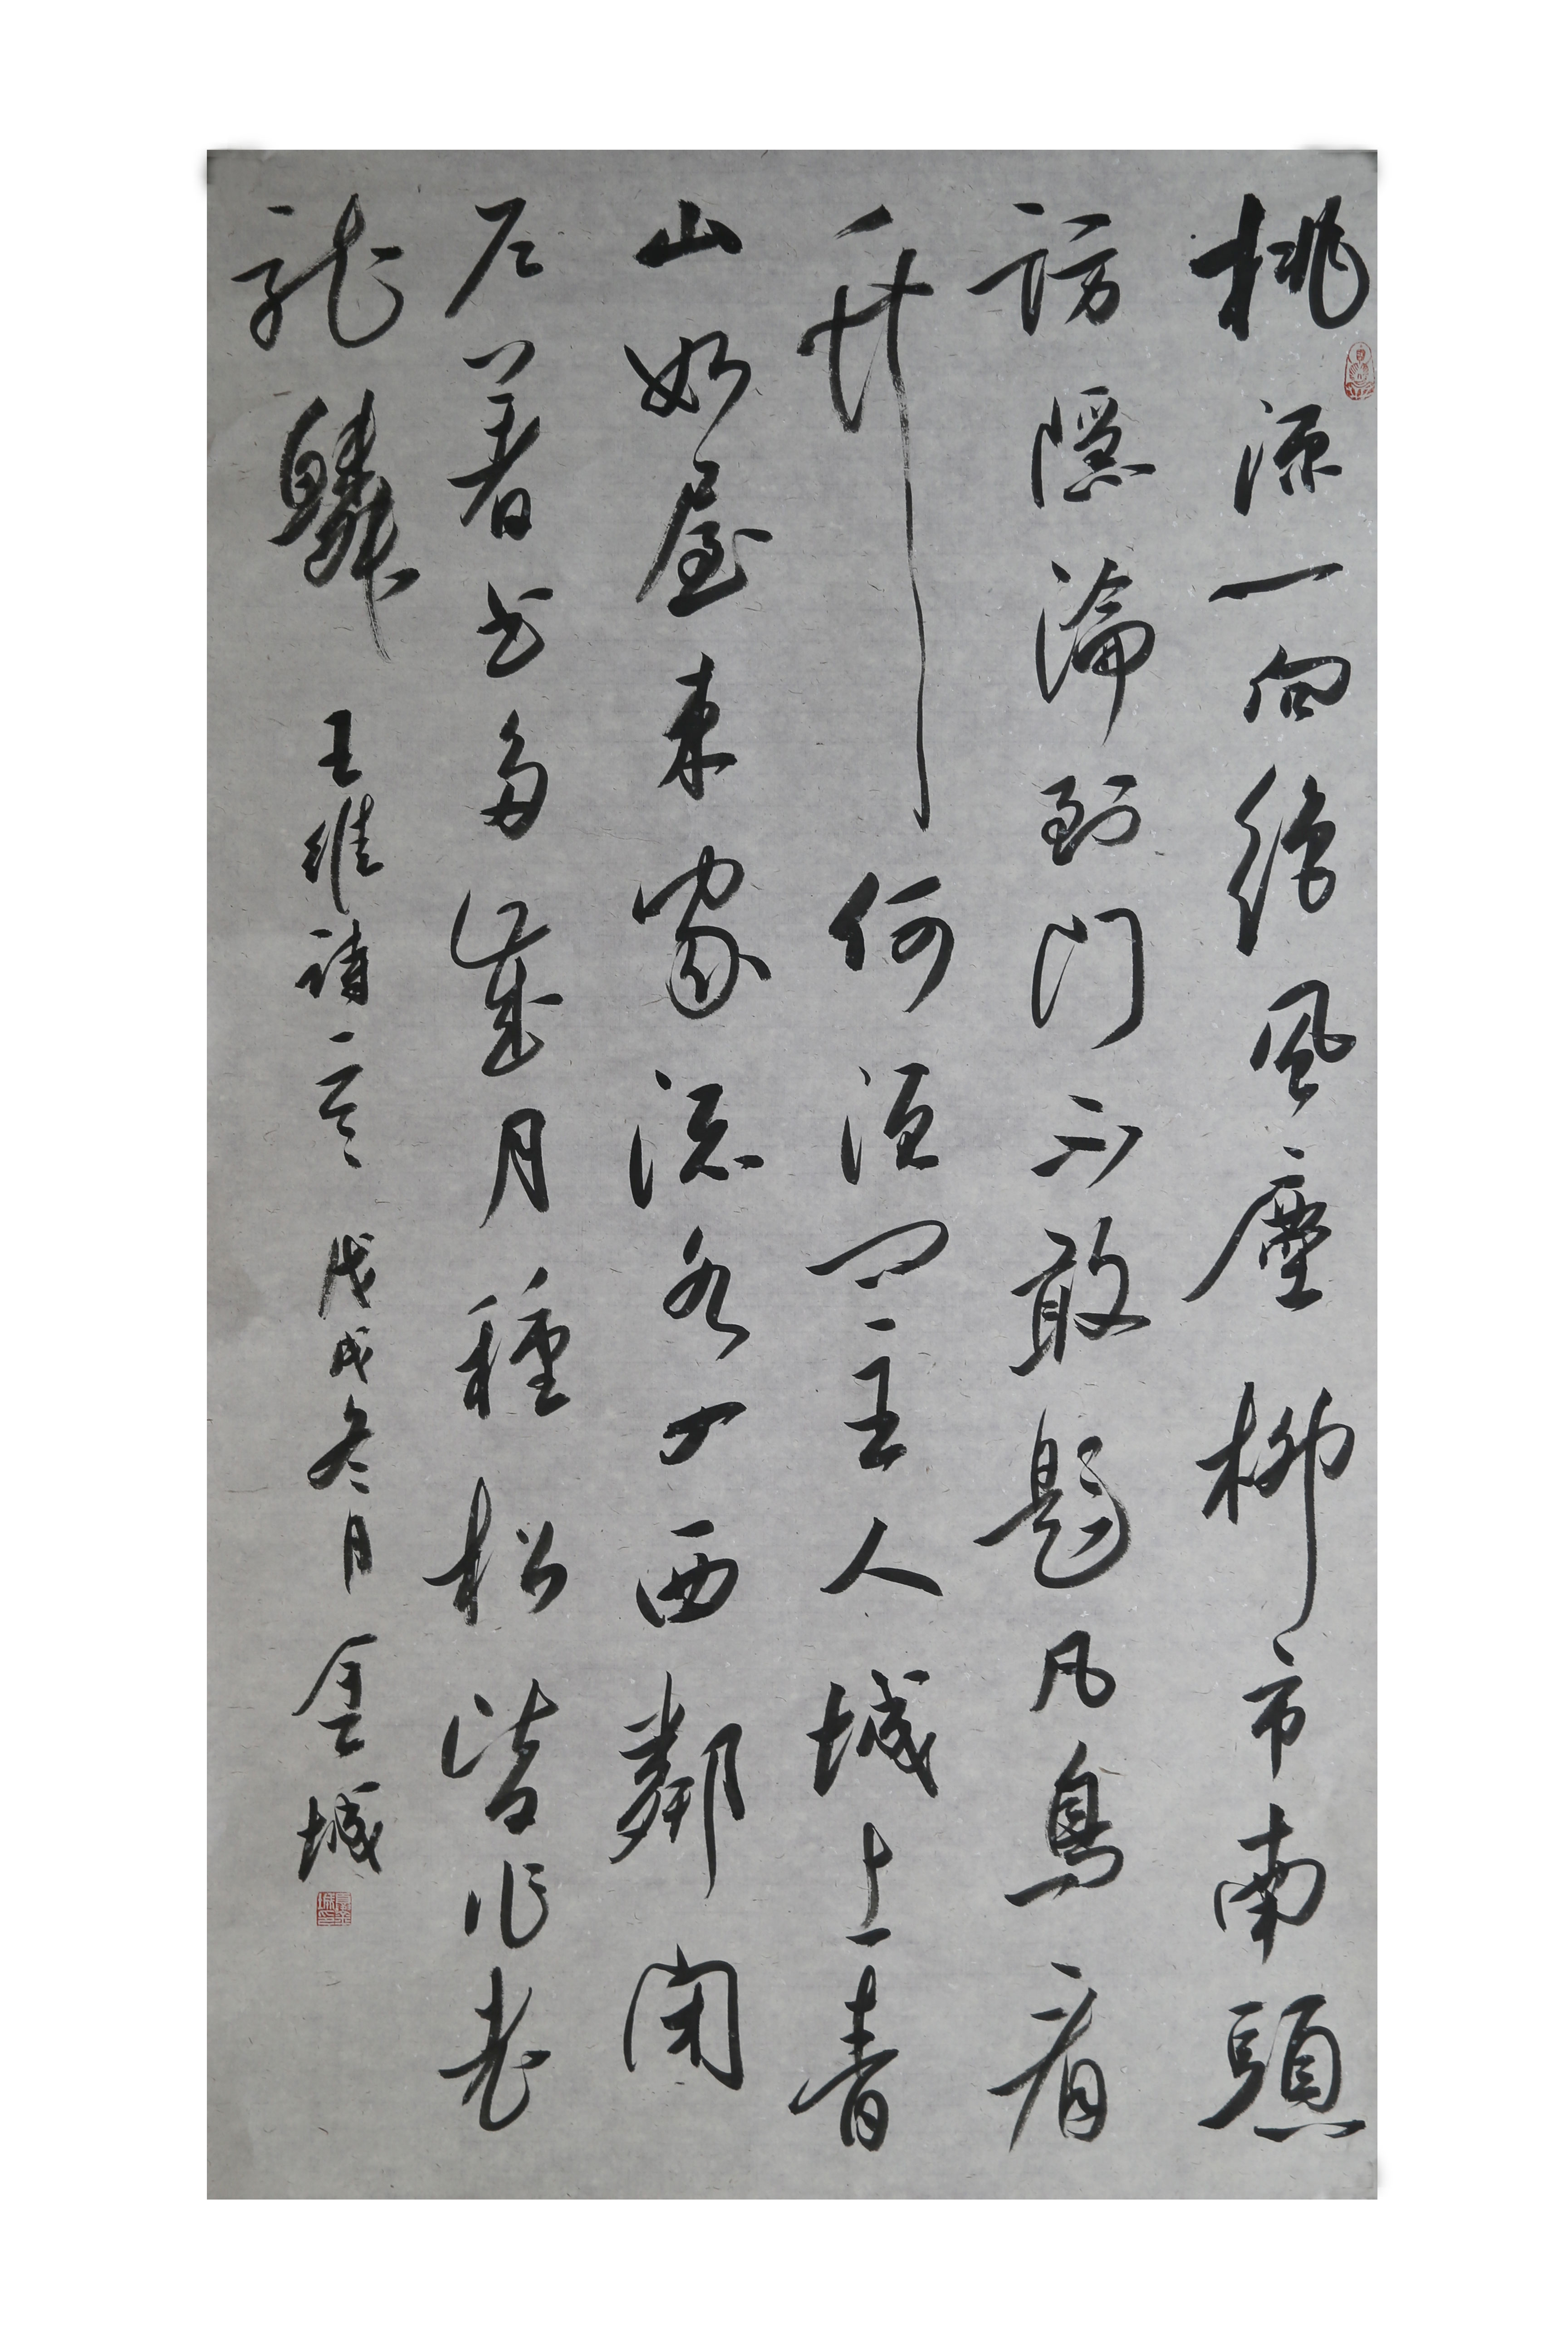 桃源一向絕風塵柳市南頭
訪隱淪到門不敢題凡鳥看
竹何須问主人城上青
山如屋東家流水入西鄰閉
戶著書多歲月種松皆作老
龍鱗 王維詩一首 戊戌冬月 金城